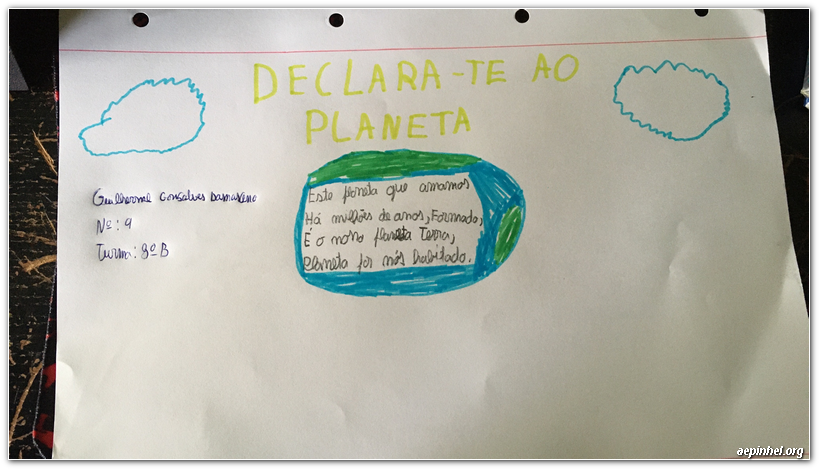 DECLARA-TE AO
PLANETA
Guilherme Gonçalves Damasceno
Nº: 9
Turma: 8º B
Este planeta que amamos
Há milhões de anos, Formado,
É o nosso planeta Terra,
Planeta por nós habitado.
aepinhel.org